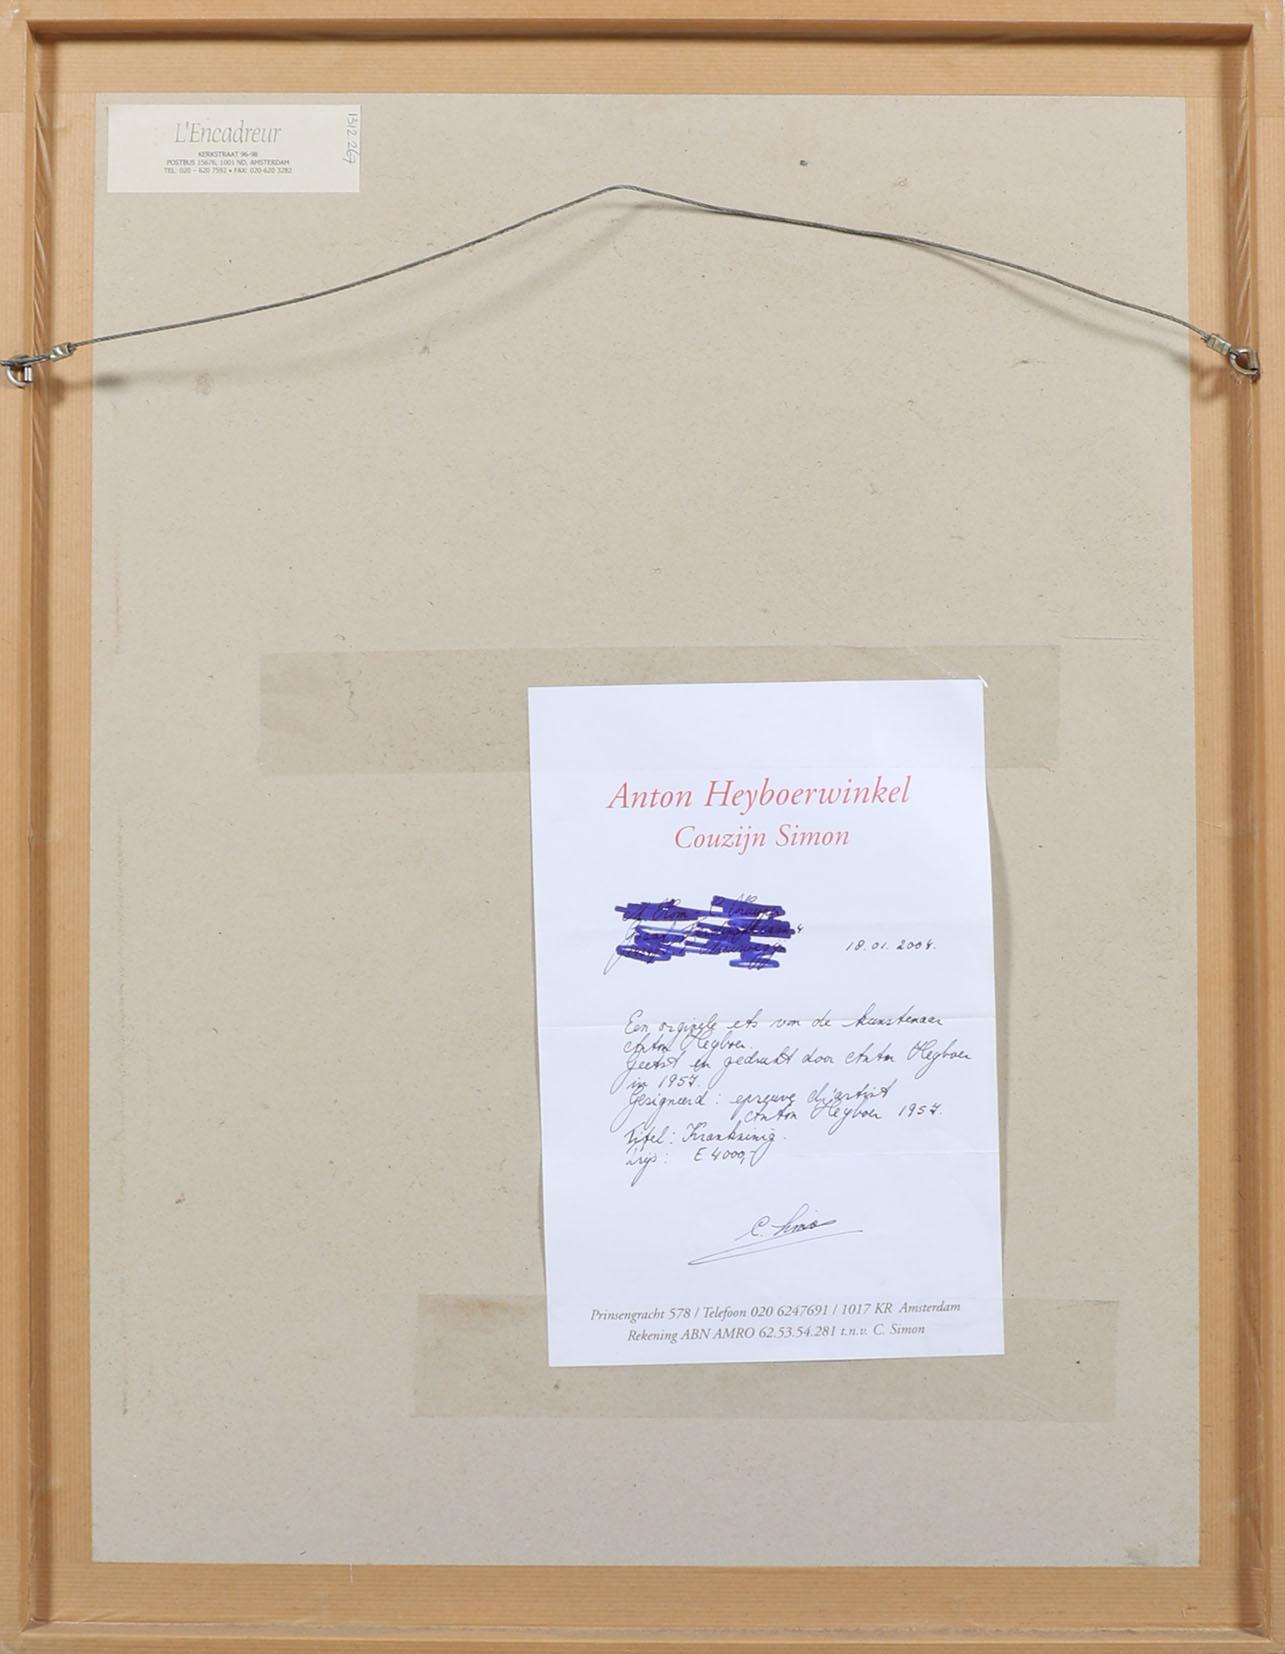 L'Encadreur
KERKSTRAAT 96-98
POSTBUS 15676, 1001 ND, AMSTERDAM
TEL: 020 – 620 7592 • FAX: 020-620 3282
1312 267
Anton Heyboerwinkel
Couzijn Simon
18.01.2004.
Een orginele ets van de kunstenaar
Anton Heyboer.
Geetst en gedrukt door Anton Heyboer
in 1957.
Gesigneerd: epreuve d'artist
Anton Heyboer 1957.
Titel: Krankzinig.
Prijs: E 4000,-
C. Simon
Prinsengracht 578 / Telefoon 020 6247691 / 1017 KR Amsterdam
Rekening ABN AMRO 62.53.54.281 t.n.v. C. Simon